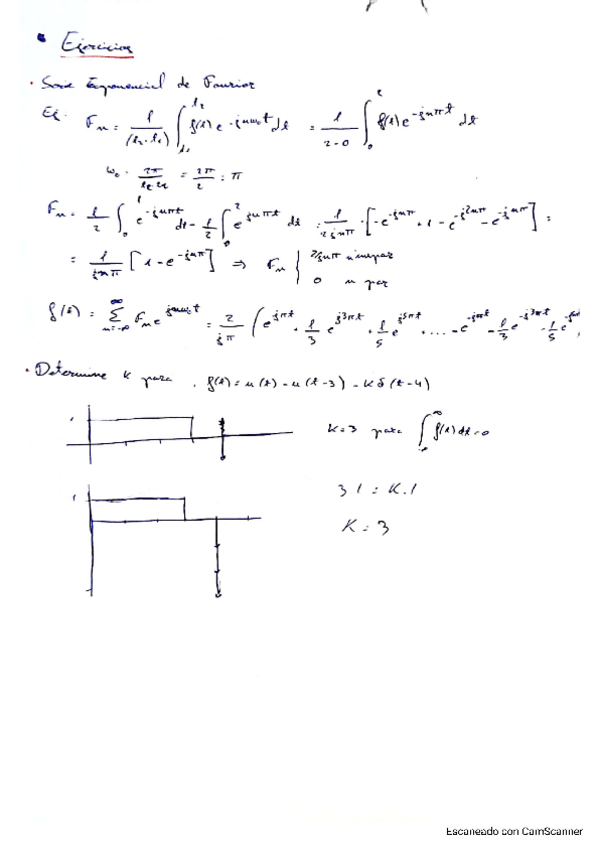 • Ejercicios
• Serie Exponencial de Fourier
Ej. Fn = 1/(t2-t1) ∫_{t1}^{t2} f(t) e^{-jnω0t} dt = 1/(2-0) ∫_0^2 f(t) e^{-jnπt} dt
ω0 = 2π/ = 2π/2 = π
Fn = 1/2 ∫_0^1 e^{-jnπt} dt - 1/2 ∫ ^2 e^{-jnπt} dt = 1/(2jnπ) · [-e^{-jnπ} + 1 - e^{-j2nπ} - e^{-jnπ}] =
= 1/(jnπ) [1 - e^{-jnπ}] ⇒ Fn { 2/jnπ n impar
0 n par
f(t) = Σ_{n=-∞}^{∞} Fn e^{jnω0t} = 2/(jπ) (e^{jπt} + 1/3 e^{j3πt} + 1/5 e^{j5πt} + .... - e^{-jπt} - 1/3 e^{-j3πt} - 1/5 e
• Determine K para f(t) = u(t) - u(t-3) - Kδ(t-4)
K=3 para ∫^∞ f(t) dt = 0
1
3·1 = K·1
K = 3
Escaneado con CamScanner